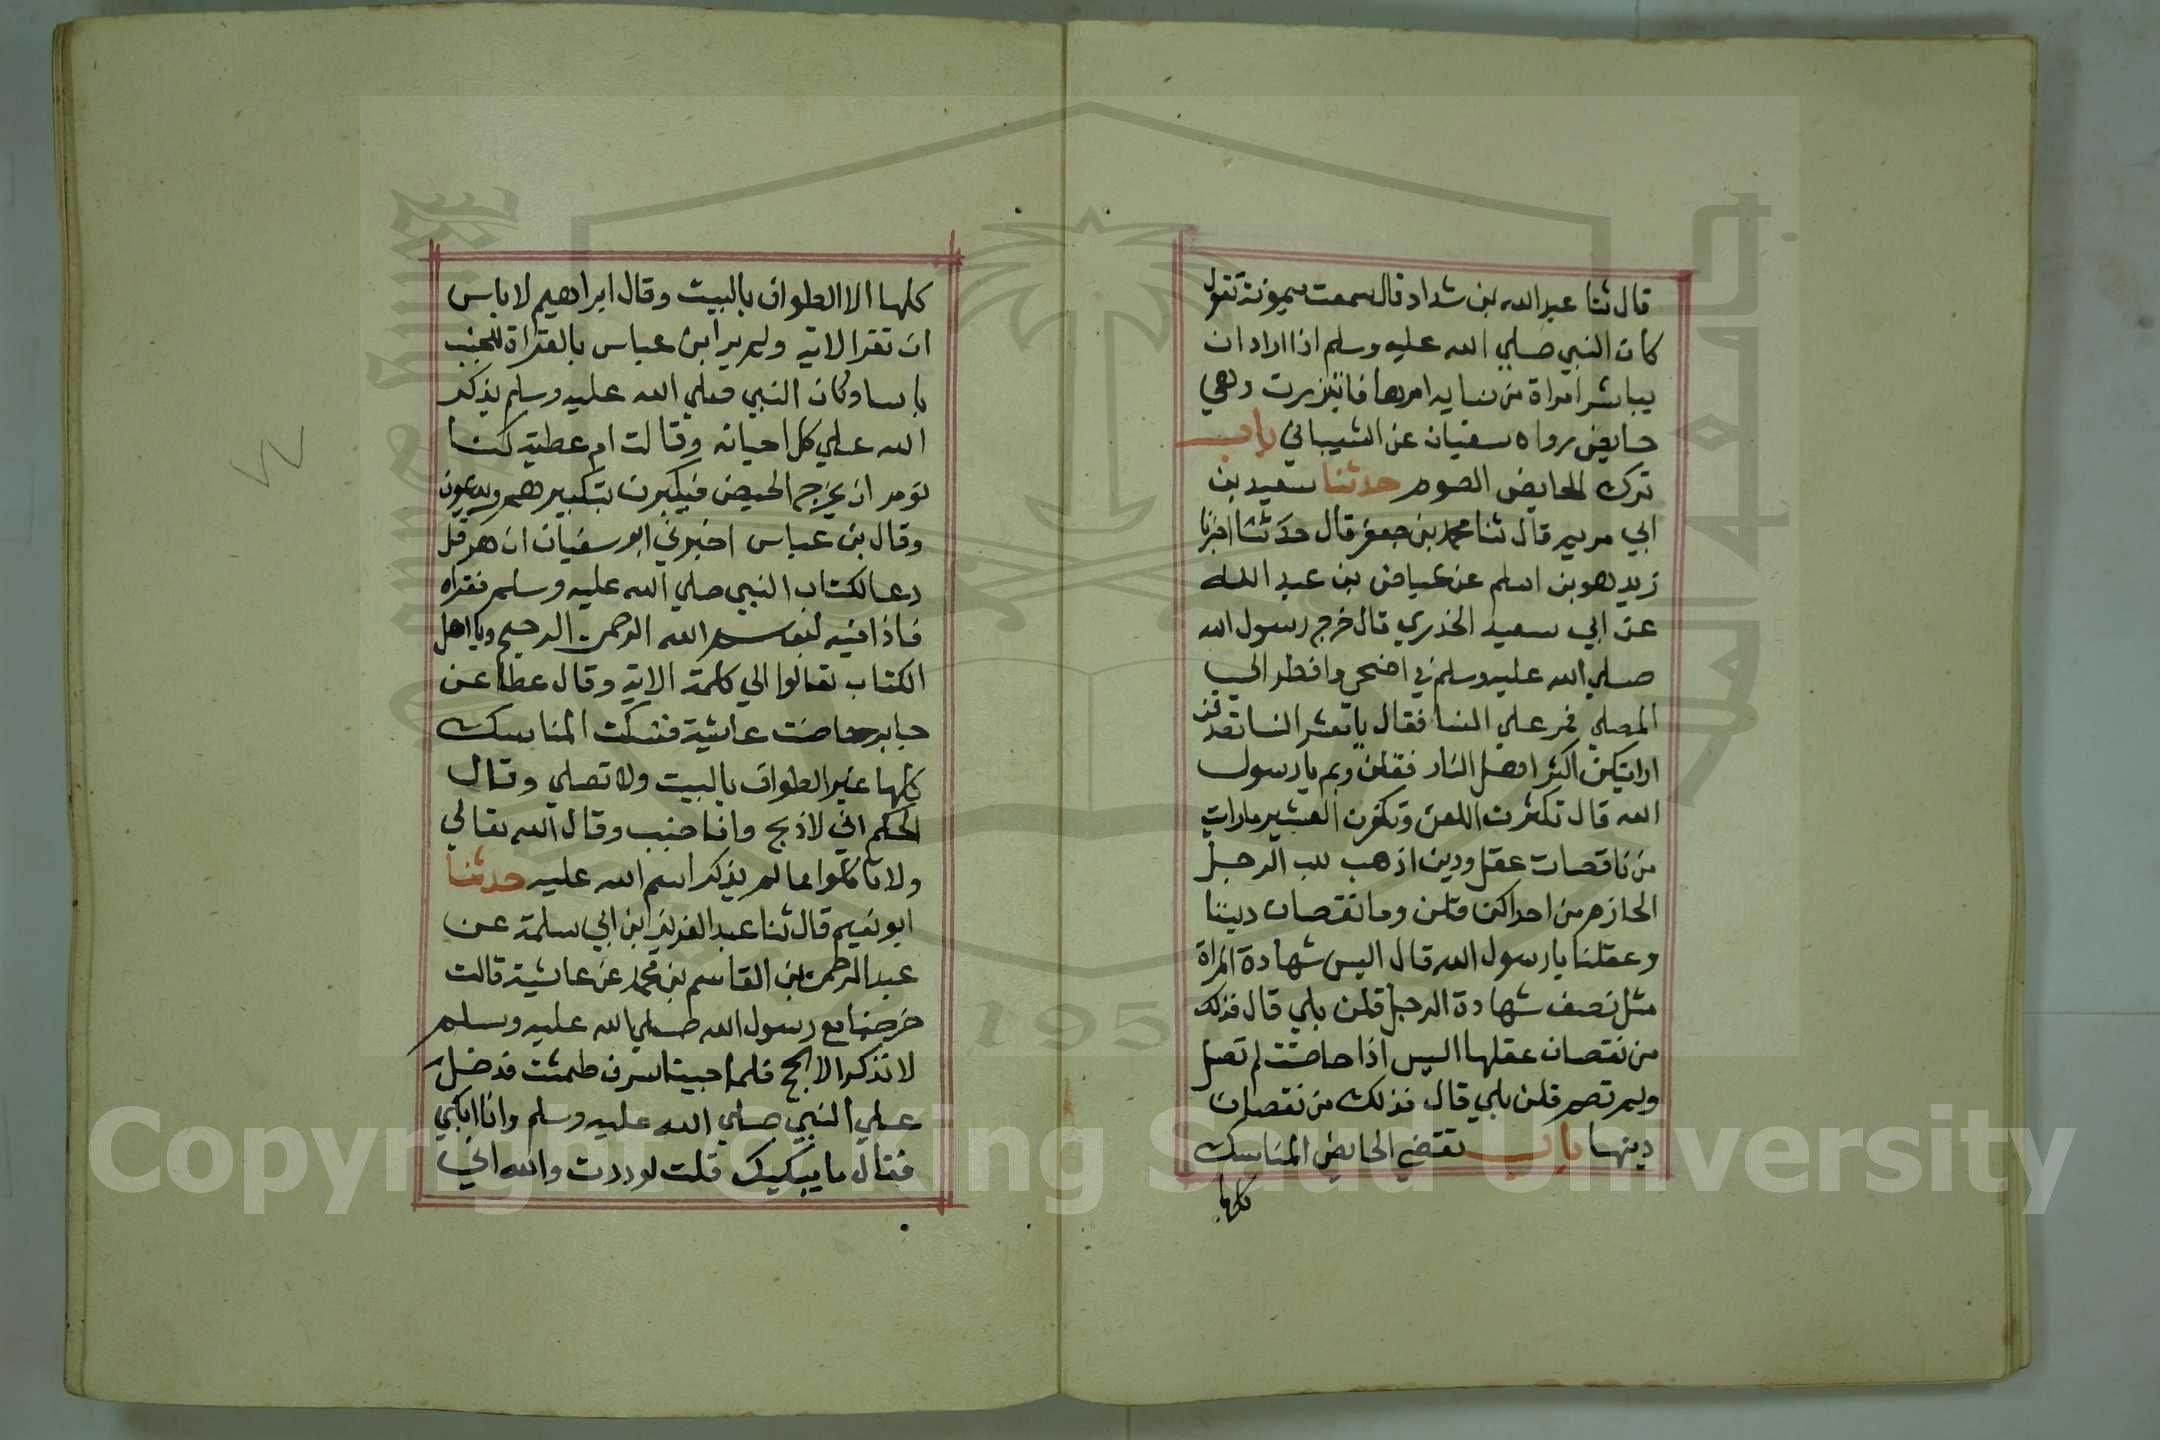 قال ثنا عبد الله بن شداد قال سمعت ميمونة تقول
كان النبي صلي الله عليه وسلم اذا اراد ان
يباشر امراة من نسايه امرها فاتزرت وهي
حايض رواه سفيان عن الشيباني باب
ترك الحايض الصوم حدثنا سعيد بن
ابي مريم قال ثنا محمد بن جعفر قال حدثنا اخبرنا
زيد هو بن اسلم عن عياض بن عبد الله
عن ابي سعيد الخدري قال خرج رسول الله
صلي الله عليه وسلم في اضحي وافطر الي
المصلي فمر علي النسا فقال يا معشر النسا تصدقن
اراتيكن اكثر اهل النار فقلن وبم يا رسول
الله قال تكثرن اللعن وتكفرن العشير ما رايت
من ناقصات عقل ودين اذهب للب الرجل
الحازم من احداكن قلن وما نقصان ديننا
وعقلنا يا رسول الله قال اليس شهادة المراة
مثل نصف شهادة الرجل قلن بلي قال فذلك
من نقصان عقلها اليس اذا حاضت لم تصل
ولم تصم قلن بلي قال فذلك من نقصان
دينها باب تقضي الحايض المناسك
كلها
كلها الا الطواف بالبيت وقال ابراهيم لا باس
ان تقرا الاية ولم ير ابن عباس بالقراة للجنب
باسا وكان النبي صلي الله عليه وسلم يذكر
الله علي كل احيانه وقالت ام عطية كنا
نومر ان يخرج الحيض فيكبرن بتكبيرهم ويدعون
وقال بن عباس اخبرني ابو سفيان ان هرقل
دعا لكتاب النبي صلي الله عليه وسلم فقراه
فاذا فيه بسم الله الرحمن الرحيم ويا اهل
الكتاب تعالوا الي كلمة الاية وقال عطا عن
جابر حاضت عايشة فنسكت المناسك
كلها غير الطواف بالبيت ولا تصلي وقال
الحكم اني لاذبح وانا جنب وقال الله تعالي
ولا تاكلوا مما لم يذكر اسم الله عليه حدثنا
ابو نعيم قال ثنا عبد العزيز ابن ابي سلمة عن
عبد الرحمن بن القاسم بن محمد عن عايشة قالت
خرجنا مع رسول الله صلي الله عليه وسلم
لا نذكر الا الحج فلما جينا سرف طمثت فدخل
علي النبي صلي الله عليه وسلم وانا ابكي
فقال ما يبكيك قلت لوددت والله اني
1957
Copyright © King Saud University